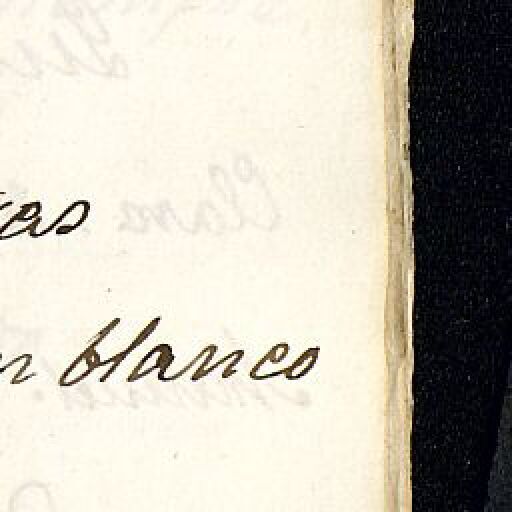 as
n blanco